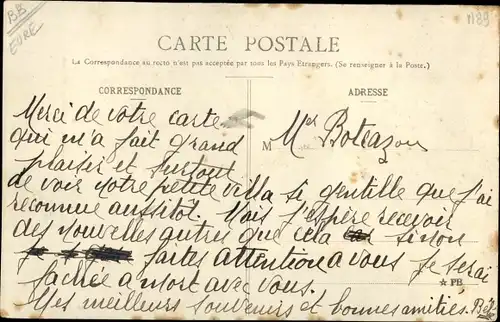 BB
EURE
1189
CARTE POSTALE
La Correspondance au recto n'est pas acceptée par tous les Pays Etrangers. (Se renseigner à la Poste.)
CORRESPONDANCE
ADRESSE
M
Boteazou
Merci de votre carte
qui m'a fait grand
plaisir et surtout
de voir votre petite villa si gentille que j'ai
reconnue aussitôt. Mais j'espère recevoir
des nouvelles autres que cela sinon
faites attention à vous je serai
fachée a mort avec vous.
☆ PB
Mes meilleurs souvenirs et bonnes amitiés.